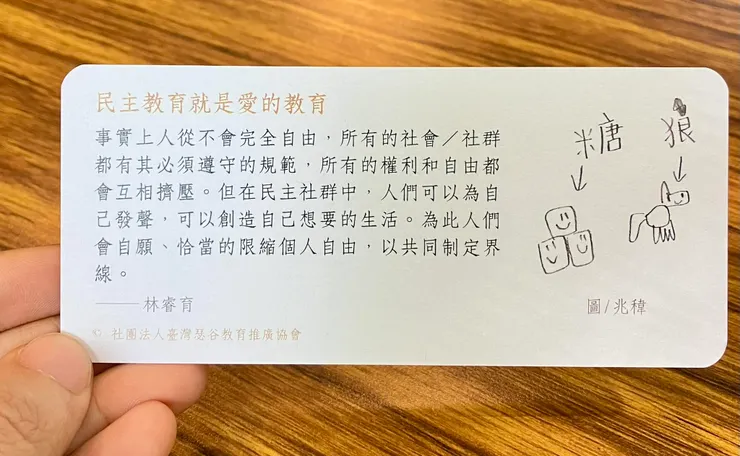 民主教育就是愛的教育
事實上人從不會完全自由，所有的社會／社群
都有其必須遵守的規範，所有的權利和自由都
會互相擠壓。但在民主社群中，人們可以為自
己發聲，可以創造自己想要的生活。為此人們
會自願、恰當的限縮個人自由，以共同制定界
線。
——林睿育
© 社團法人臺灣瑟谷教育推廣協會
糖
狼
圖/兆稦